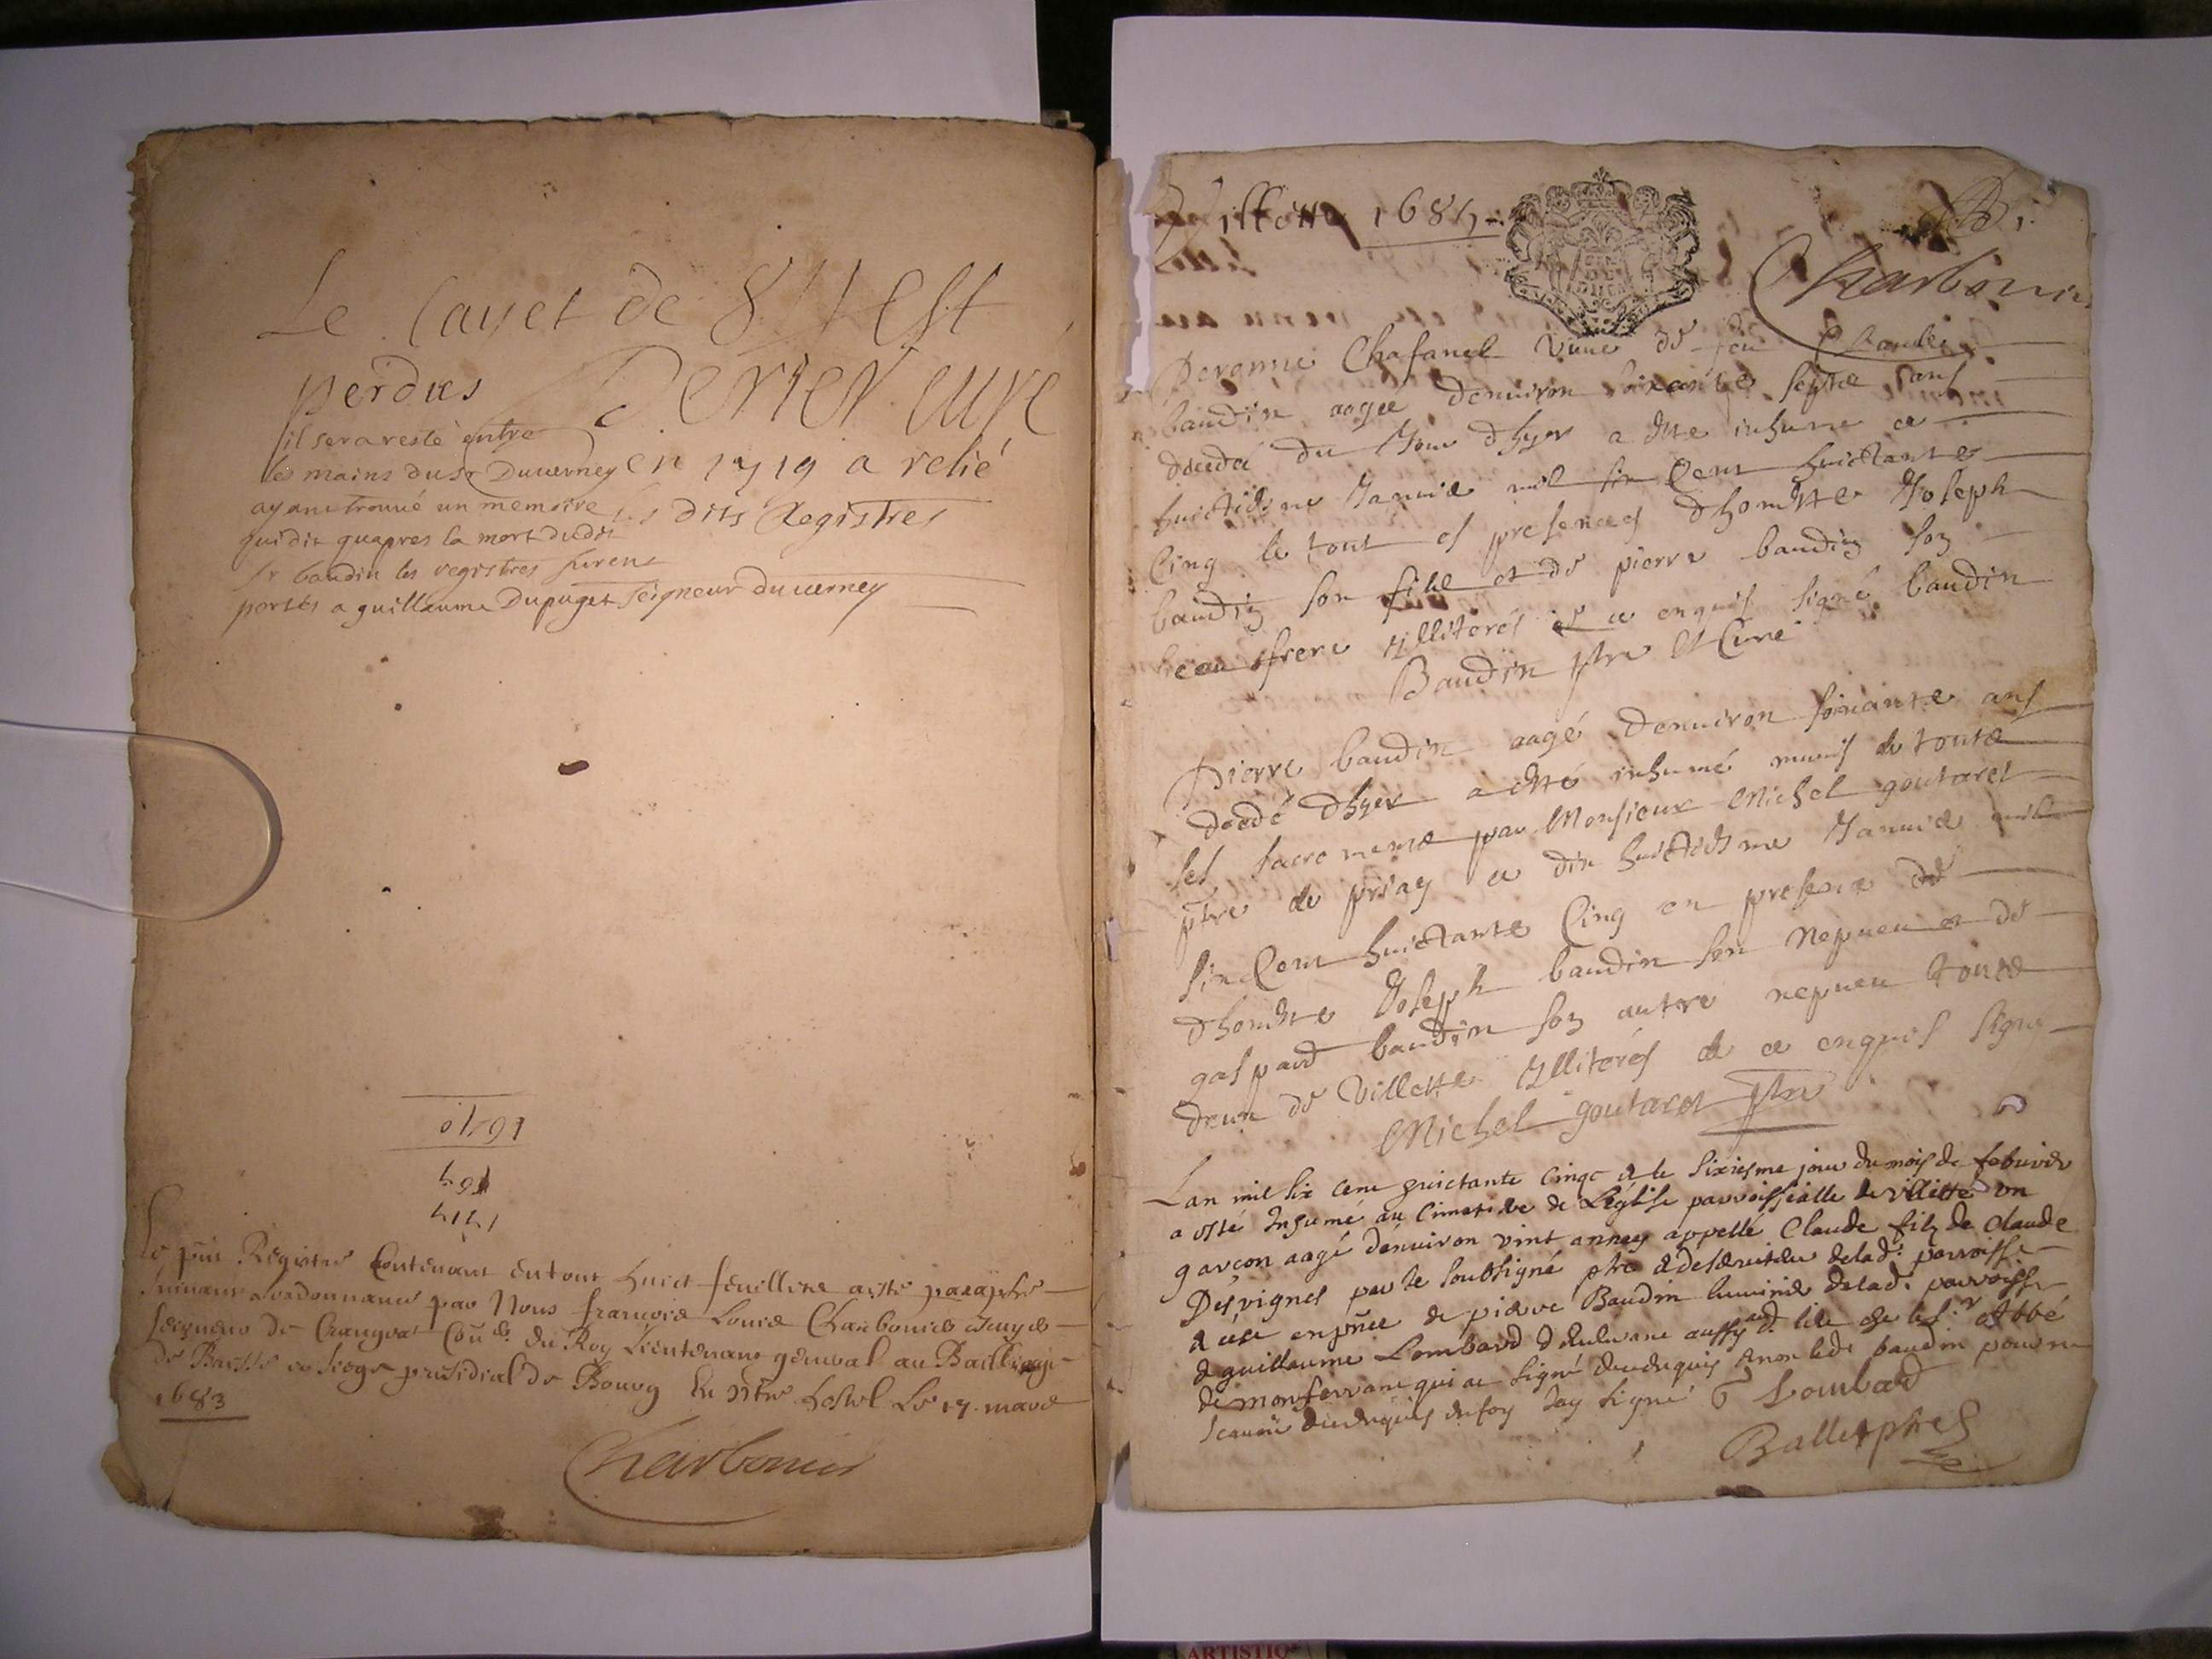 Le Cayet de 84 est
perdues Perrier curé
en 1719 a relié
les dits Registres
il sera resté entre
les mains du Sr Duverney
ayant trouvé un memoire
qui dit quapres la mort dudit
Sr baudin les registres furent
portés a guillaume Dupuget seigneur duverney
Le pnt Registre Contenant en tout huict feuilletz a esté paraphé
suivant lordonnance par Nous françois Louis Charbonier escuyer
seigneur de Crangeat Con.er du Roy Lieutenant general au Bailliage
de Bresse et siege presidial de Bourg En nre hostel Le 17 mars
1683
Charbonier
Villette 1685
Charbonier
Peronne Chafanel vesve de feu Claude
baudin aagee denviron soixante septe ans
decedee du Jour dhyer a este inhumee ce
huictiesme Janvier mil six Cent huictante
Cinq le tout es presences dhoneste Joseph
baudin son filz et de pierre baudin son
beau frere Illiterés de ce enquis signé baudin
Baudin ptre et Curé
Pierre baudin aagé denviron soixante ans
decedé dhyer a esté inhumé munis de toute
les sacrements par Monsieur Michel goutaret
ptre de priay ce dix huictiesme Janvier mil
six Cent huictante Cinq en presence de
dhoneste Joseph baudin son Nepveu et de
gaspard baudin son autre nepveu toute
deux de Villette Illiterés de ce enquis signé
Michel goutaret ptre
Lan mil six cent huictante cinqc & le sixiesme jour du mois de febvrier
a esté Inhumé au Cimetiere de Leglise parroissialle de villette un
garcon aagé denviron vint annees appellé Claude filz de Claude
Desvignes par le soubsigné ptre & deserviteur delad. parroisse
& ce en pnce de pierre Baudin luminier delad. parroisse
& guillaume Lombard aussy dud. lieu
de monferrant qui a signé non led. baudin pour ne
scavoir de ce enquis Jay signé G Lombard
Ballet ptre